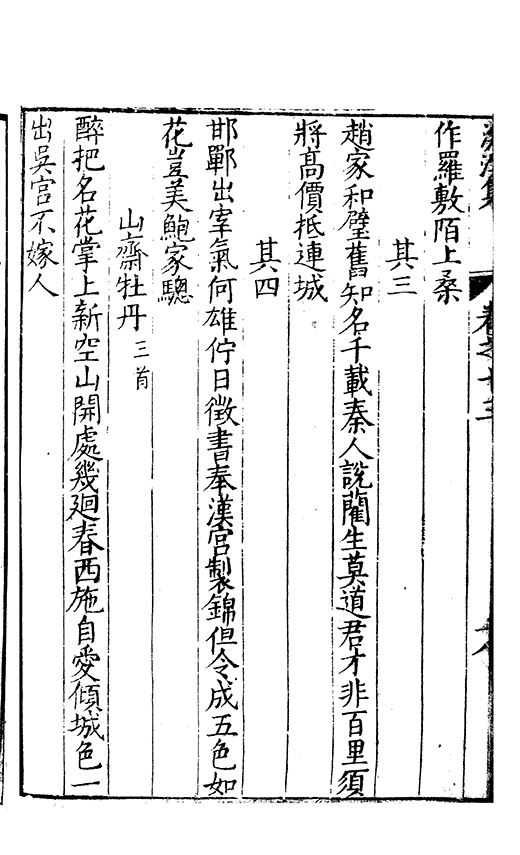 作羅敷陌上桑
其三
趙家和璧舊知名千載秦人說藺生莫道君才非百里須
將高價抵連城
其四
邯鄲出宰氣何雄佇日徵書奉漢宮製錦但令成五色如
花豈羡鮑家驄
山齋牡丹三首
醉把名花掌上新空山開處幾廻春西施自愛傾城色一
出吳宫不嫁人